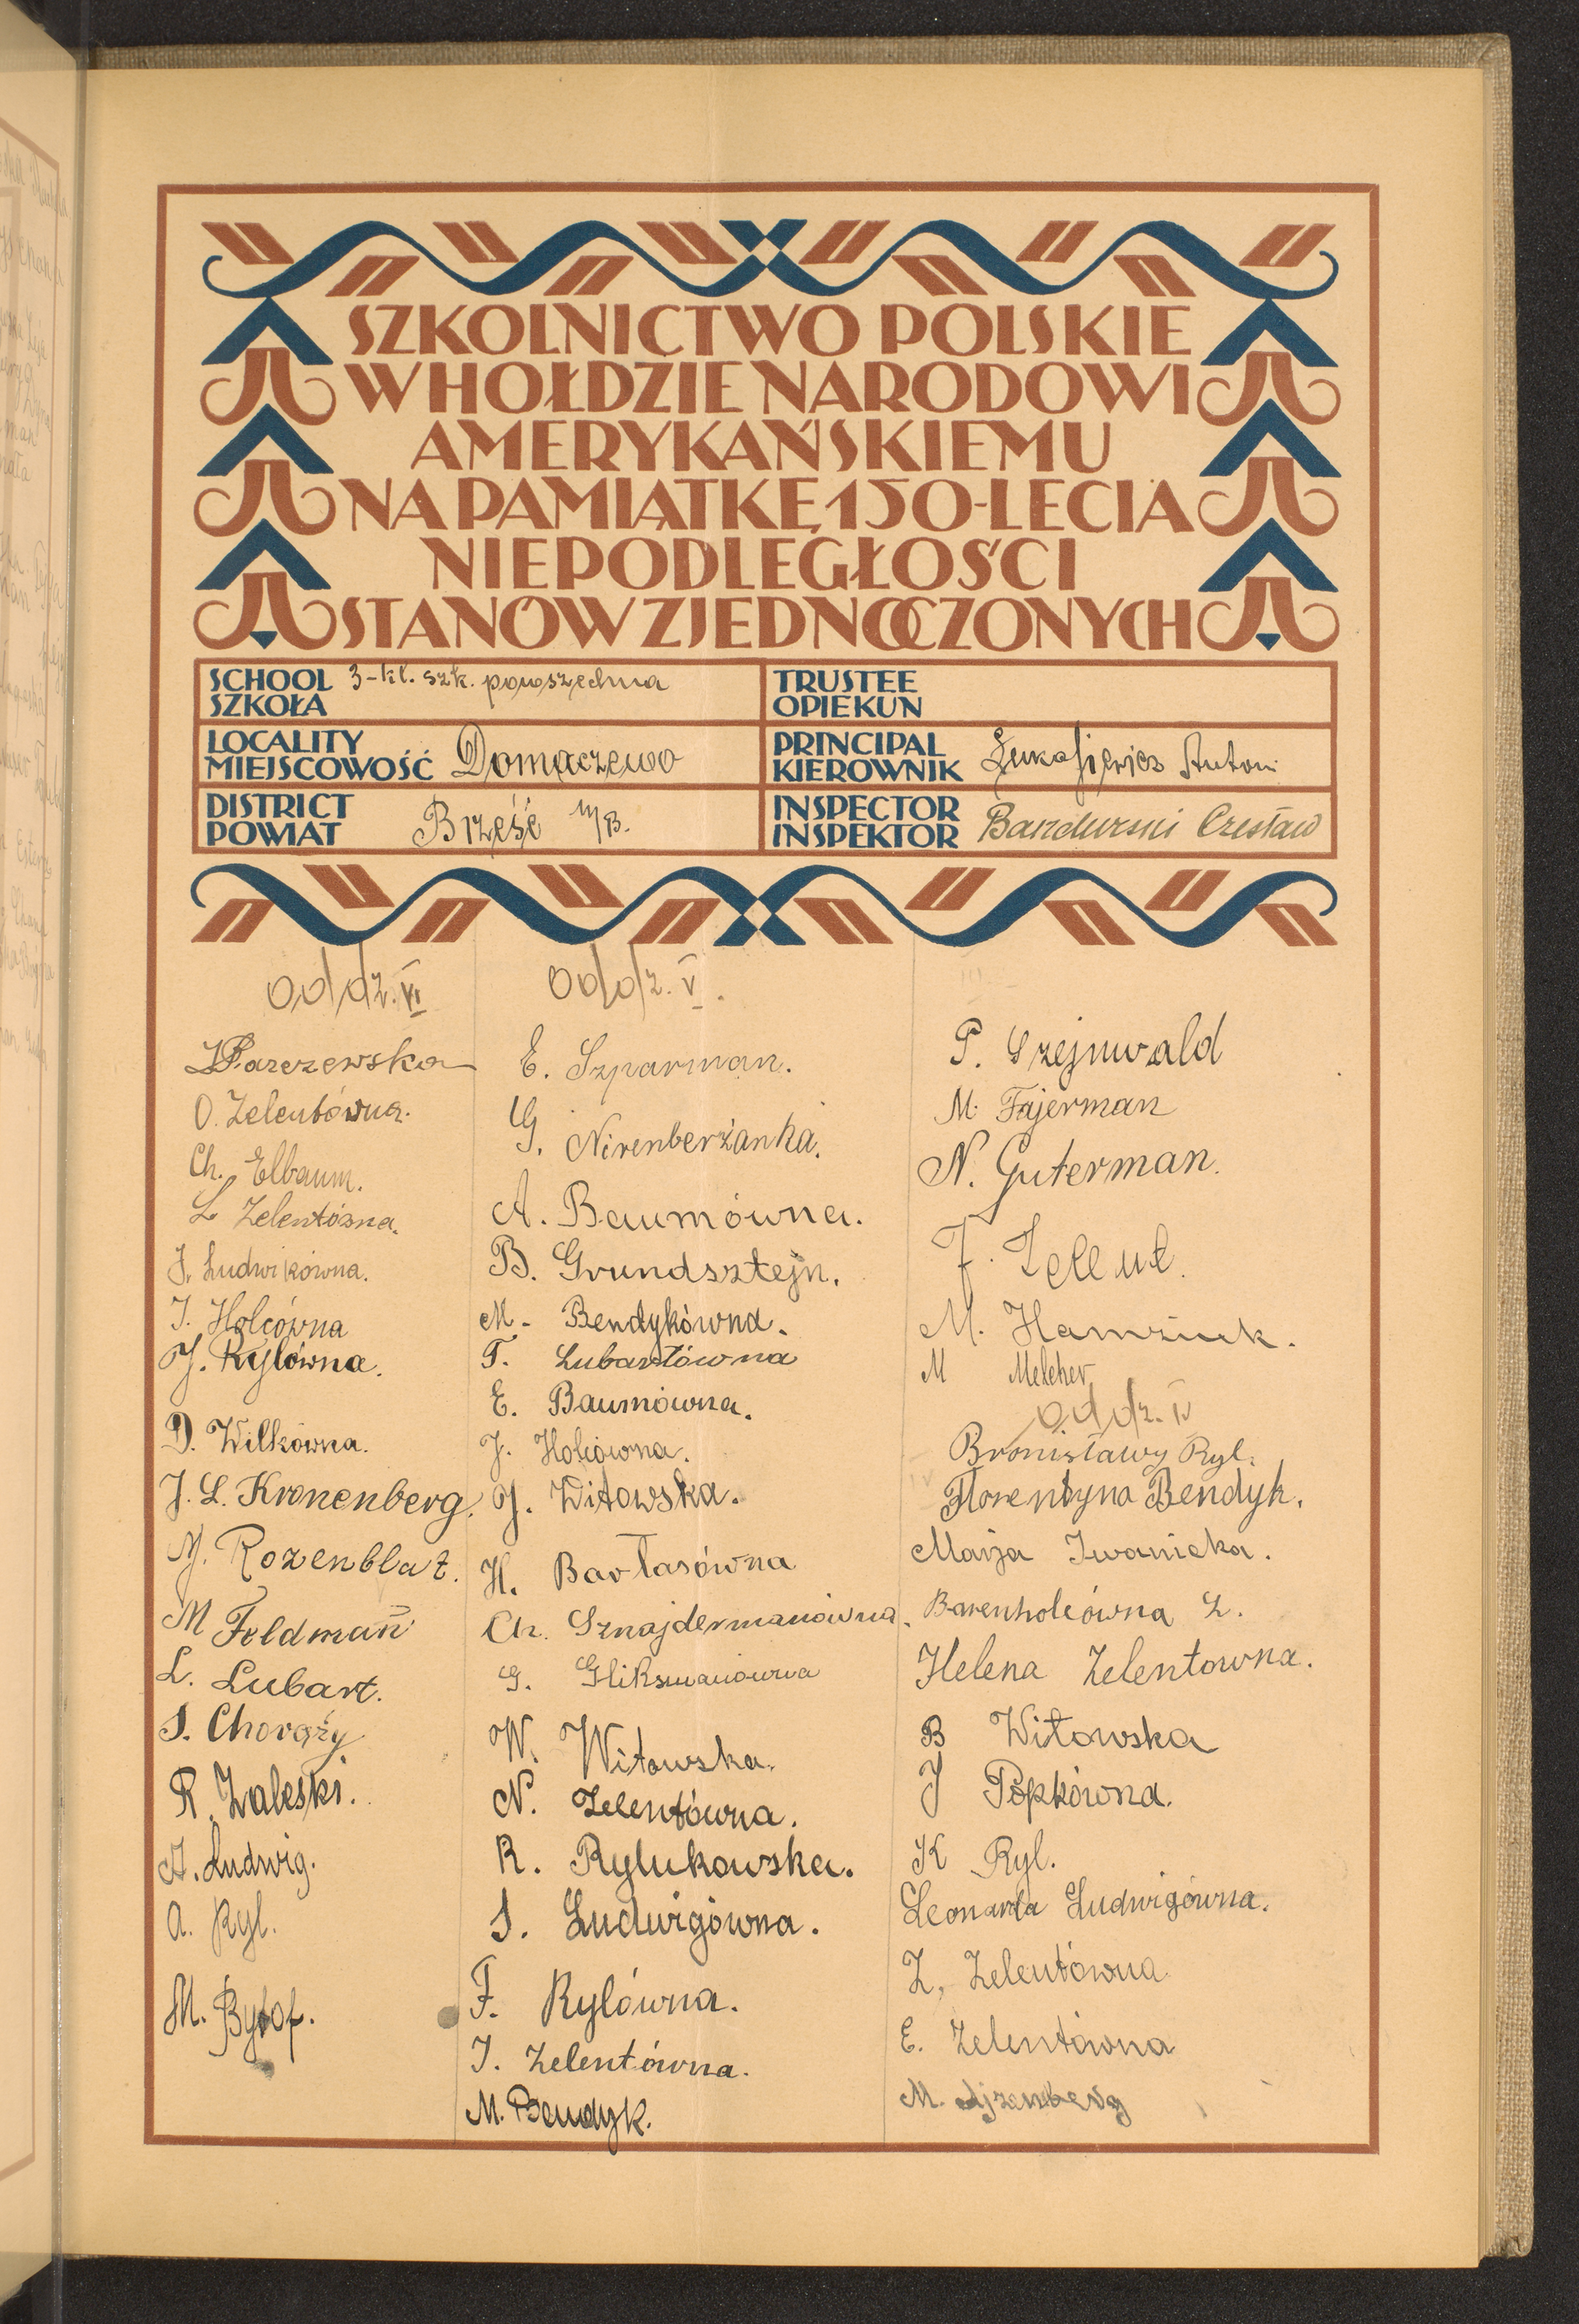 SZKOLNICTWO POLSKIE
W HOŁDZIE NARODOWI
AMERYKAŃSKIEMU
NA PAMIĄTKĘ 150-LECIA
NIEPODLEGŁOŚCI
STANÓW ZJEDNOCZONYCH
SCHOOL
SZKOŁA
3-kl. szk. powszechna
TRUSTEE
OPIEKUN
LOCALITY
MIEJSCOWOŚĆ
Domaczewo
PRINCIPAL
KIEROWNIK
Łukasiewicz Antoni
DISTRICT
POWIAT
Brześć n/B.
INSPECTOR
INSPEKTOR
Bandurski Czesław
oddz. VI
Parczewska
O. Zelentówna.
Ch. Elbaum.
L Zelentówna.
J. Ludwikówna.
J. Holcówna
J. Rylówna.
D. Wilkówna.
J. L. Kronenberg.
M. Rozenblat.
M Feldman
L. Lubart.
S. Chorąży
R. Zaleski.
A. Ludwig.
A. Ryl.
M. Bytof.
oddz. V.
E. Szparman.
G. Nirenberżanka.
A. Baumówna.
B. Grundsztejn.
M. Bendykówna.
T. Lubartówna
E. Baumówna.
J. Holcówna.
J. Witowska.
H. Bartasówna
Ch. Sznajdermanówna.
G. Gliksmanówna
W. Witowska.
N. Zelentówna.
R. Rylukowska.
S. Ludwigówna.
F. Rylówna.
J. Zelentówna.
M. Bendyk.
P. Szejnwald
M. Fajerman
N. Guterman.
F. Zelent.
M. Hamziuk.
M Melcher
oddz. IV
Bronisławy Ryl.
Florentyna Bendyk.
Marja Iwanicka.
Barenholcówna L.
Helena Zelentowna.
B Witowska
J Popkówna.
K Ryl.
Leonarda Ludwigówna.
Z. Zelentówna
E. Zelentówna
M. Ajzenberg